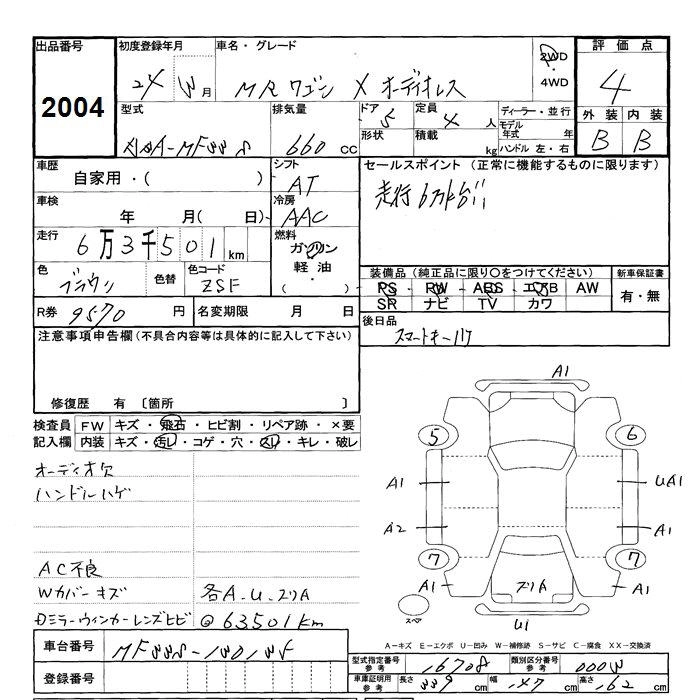 出品番号
2004
初度登録年月
24 月
車名・グレード
MRワゴン X オーディオレス
2WD
・
4WD
評価点
4
外装 内装
B B
型式
排気量
660 cc
ドア 5
形状
定員 4 人
積載 kg
ディーラー・並行
モデル
年式 年
ハンドル 左・右
車歴
自家用・( )
シフト
AT
セールスポイント (正常に機能するものに限ります)
走行6万km台!!
車検
年 月( 日)
冷房
AAC
走行
6万3千501km
燃料
ガソリン
・
軽油
( )
色
ブラウン
色替
色コード
ZSF
装備品 (純正品に限り○をつけてください)
PS PW ABS エアB AW
SR ナビ TV カワ
新車保証書
有・無
R券 9570 円
名変期限 月 日
後日品
スマートキー
注意事項申告欄(不具合内容等は具体的に記入して下さい)
修復歴 有 〔箇所 〕
検査員
記入欄
FW キズ・飛石・ヒビ割・リペア跡・×要
内装 キズ・汚レ・コゲ・穴・スレ・キレ・破レ
オーディオ欠
ハンドルハゲ
AC不良
Wカバーキズ 各A.U.スリA
Dミラーウィンカーレンズヒビ @63501km
A1
5 6
A1 UA1
A2 A1
7 7
A1 スリA A1
スペア
U1
A-キズ E-エクボ U-凹み W-補修跡 S-サビ C-腐食 XX-交換済
車台番号
登録番号
型式指定番号
参考
16708
類別区分番号
参考
車庫証明用
参考
長さ 339 cm 幅 147 cm 高さ 162 cm